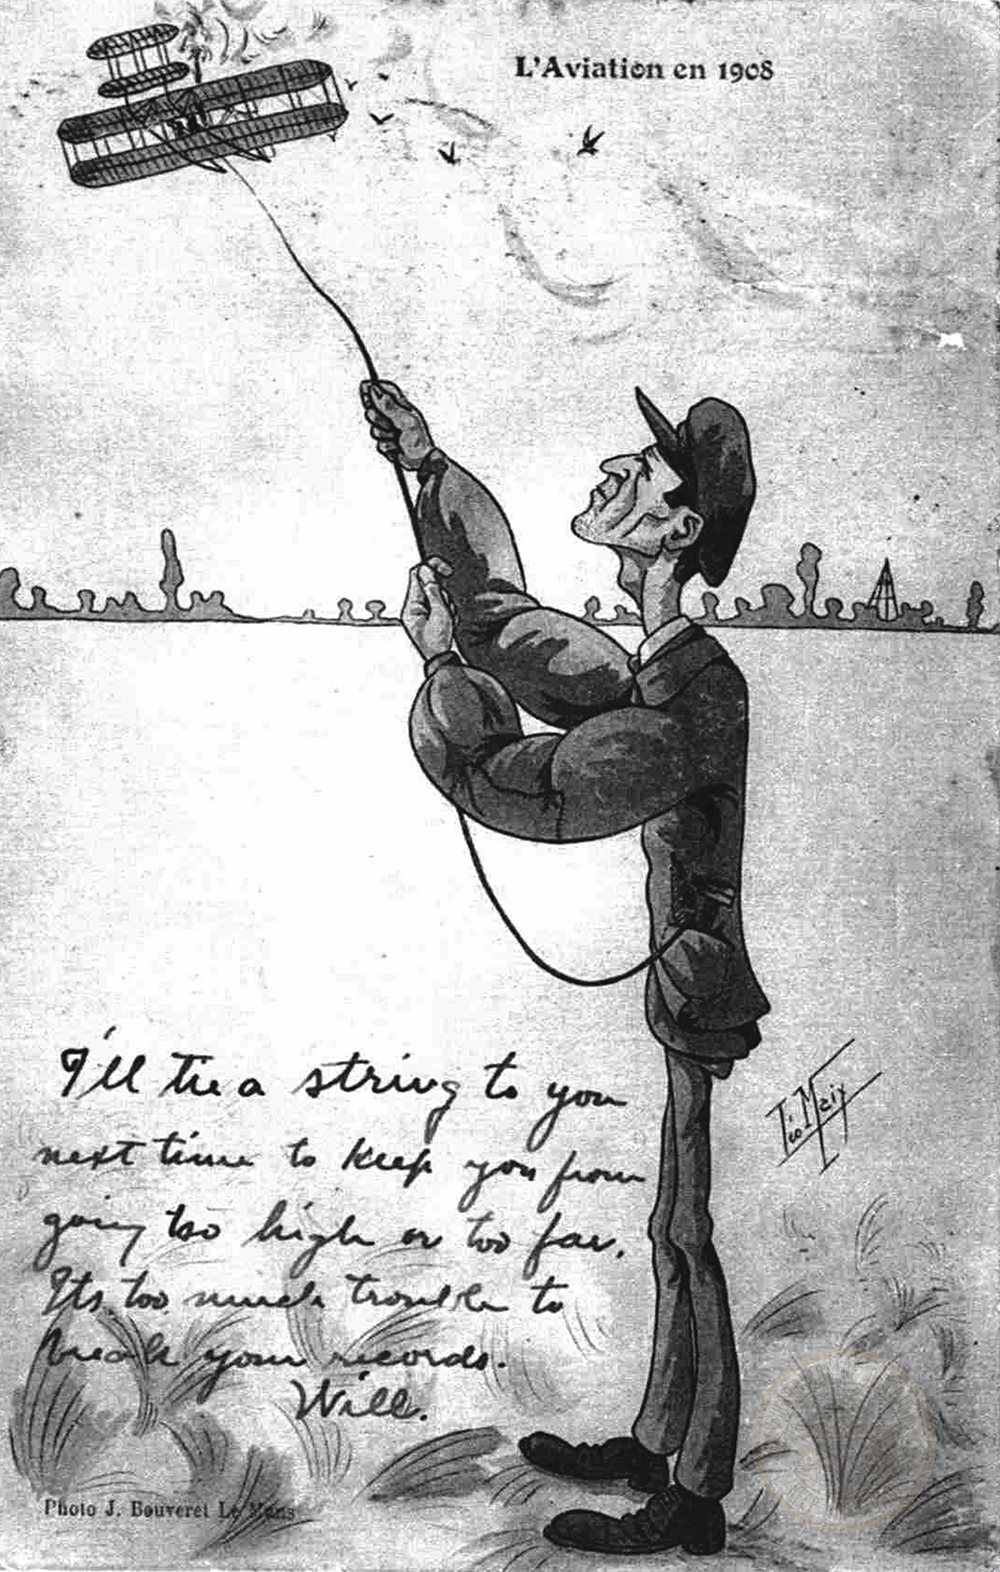 L'Aviation en 1908
I'll tie a string to you
next time to keep you from
going too high or too far.
Its too much trouble to
break your records.
Will.
Photo J. Bouveret Le Mans